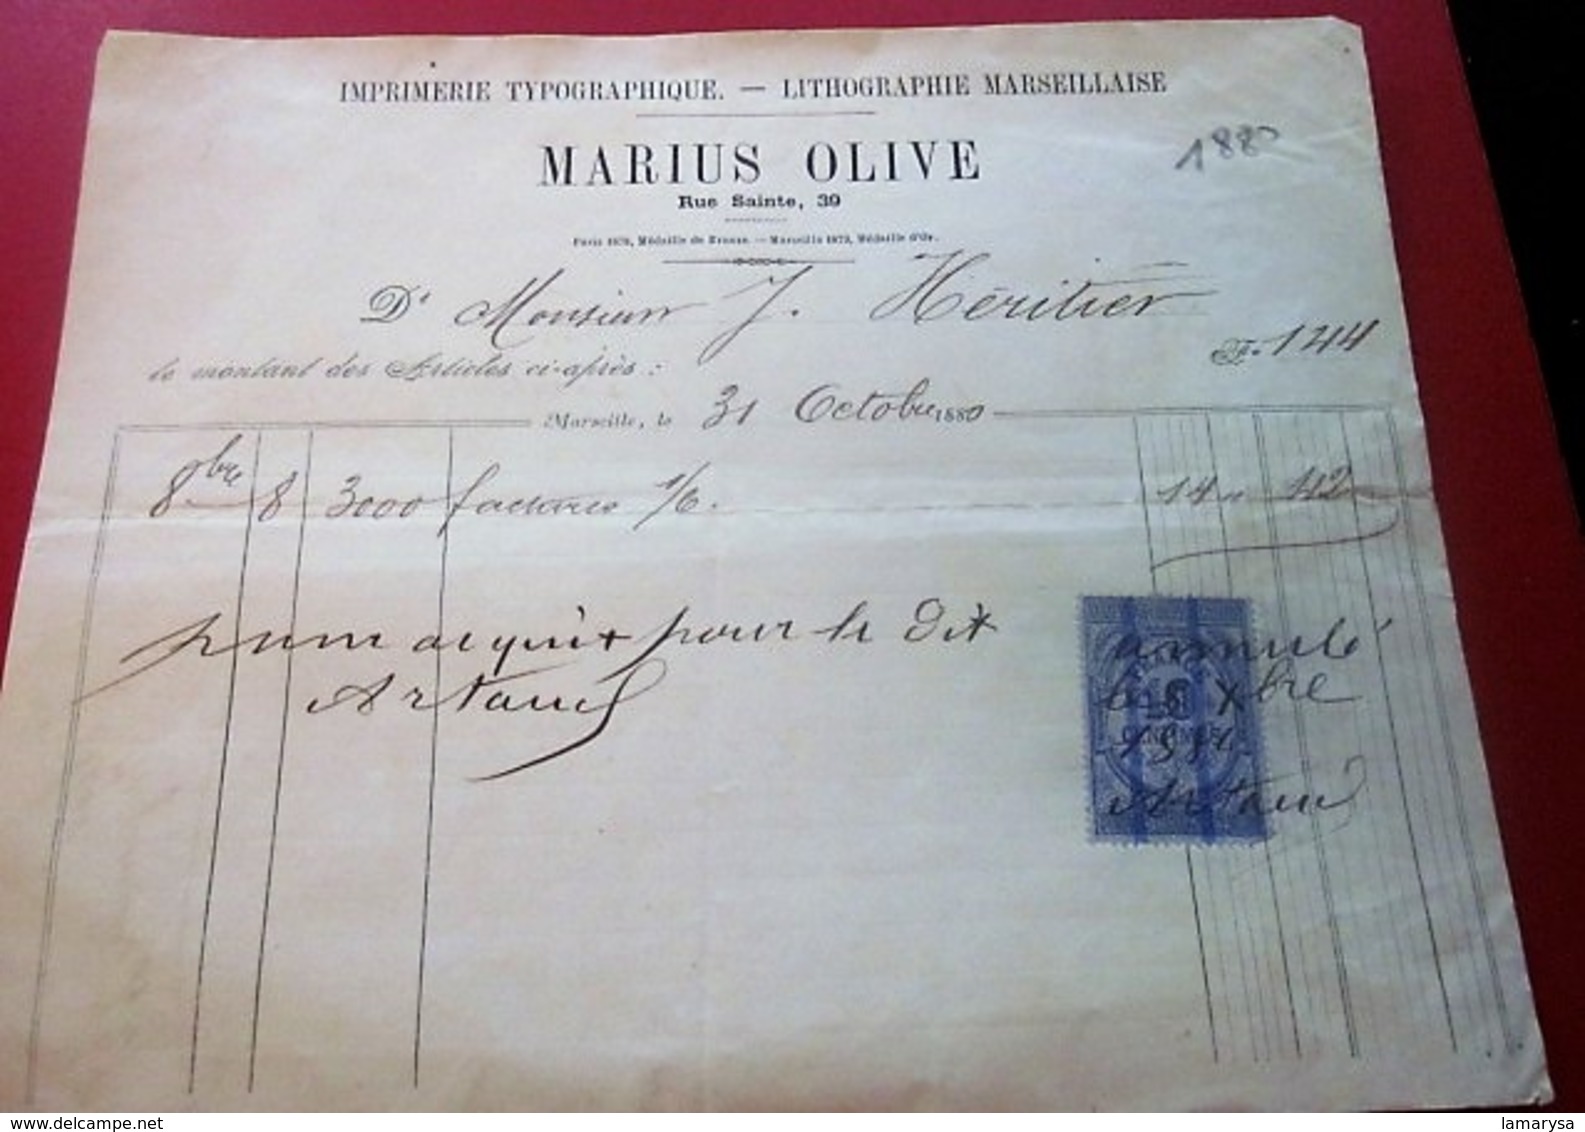 IMPRIMERIE TYPOGRAPHIQUE. — LITHOGRAPHIE MARSEILLAISE
1880
MARIUS OLIVE
Rue Sainte, 39
Paris 1878, Médaille de Bronze. — Marseille 1879, Médaille d'Or.
Dt Monsieur J. Héritier
le montant des Articles ci-après : F. 144
Marseille, le 31 Octobre 1880
8bre 8 3000 factures 1/6. 14 " 42
pour acquit pour le dit
Artaud
annulé
le 8 Xbre
Artaud
CENTIMES
lamarysa